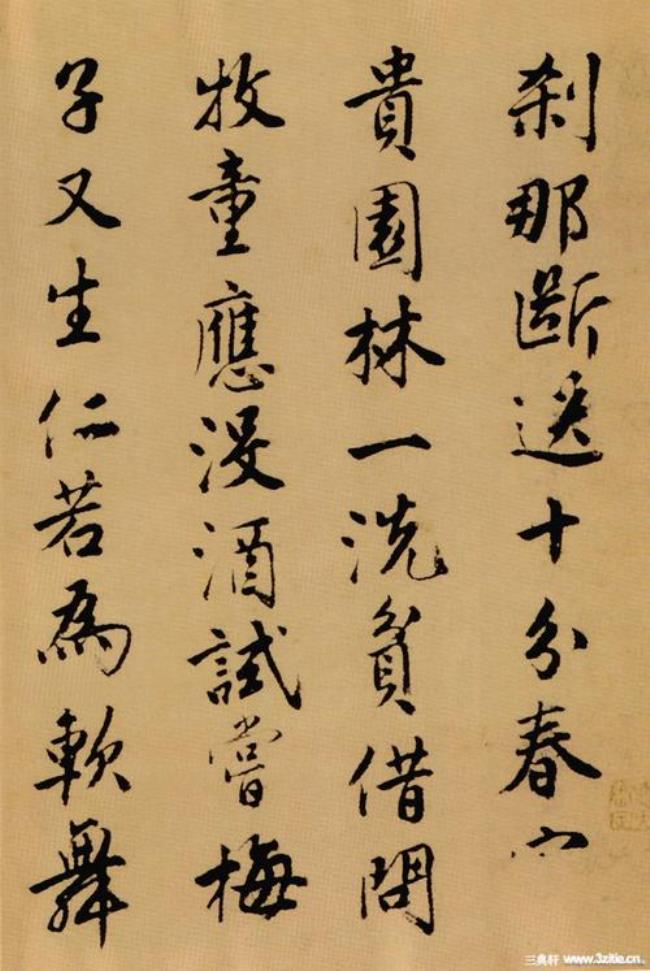 刹那斷送十分春
貴園林一洗貧借問
牧童應没酒試嘗梅
子又生仁若為軟舞
三典轩 www.3zitie.cn